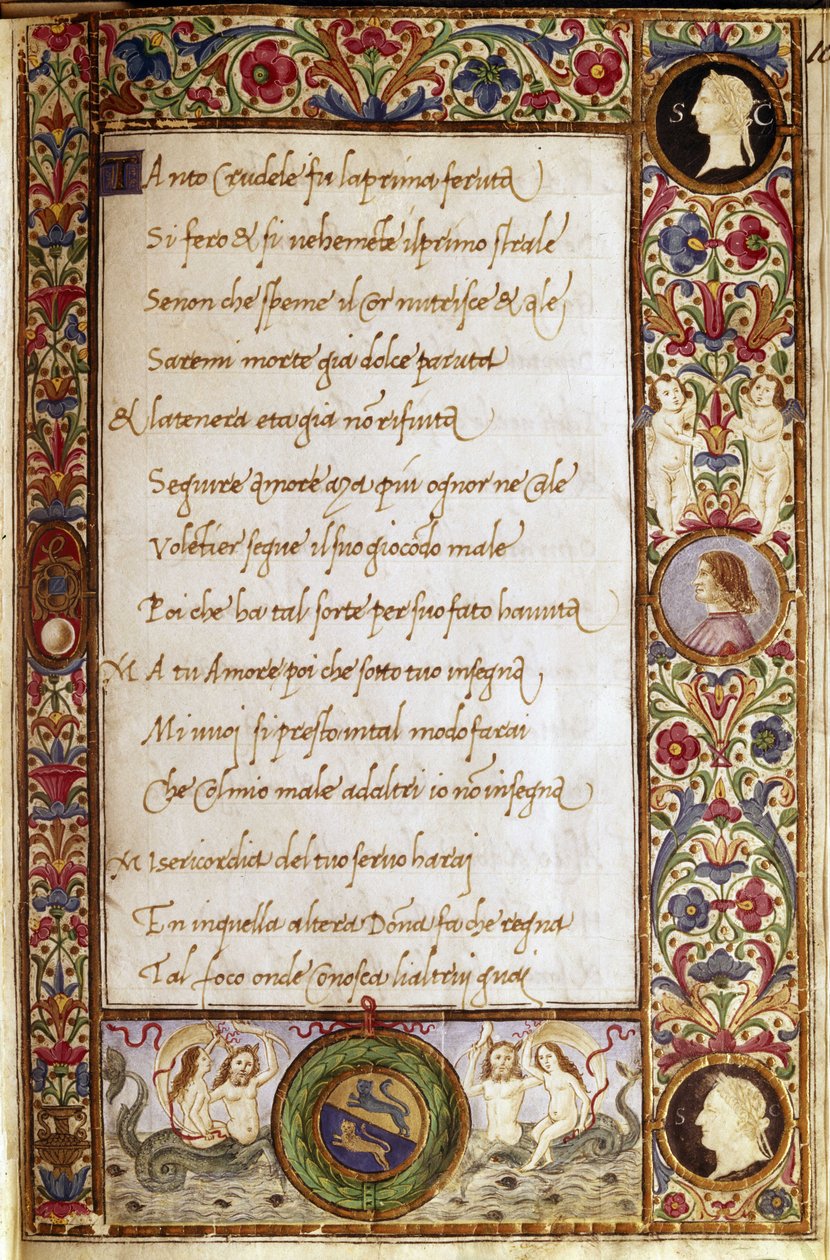 TAnto Crudele fu laprima feruta
Si fero & si vehemēte ilprimo strale
Senon che speme il Cor nutrisce & ale
Saremi morte gia dolce paruta
& latenera eta gia nō rifiuta
Seguire amore aza piu ognor ne cale
Volētier segue ilsuo giocōdo male
Poi che ha tal sorte per suo fato havuta
MA tu Amore poi che sotto tuo insegna
Mi vuoj si presto intal modo farai
Che Colmio male adaltri io nō insegna
MIsericordia del tuo servo haraj
En inquella altera Dōna fa che regna
Tal foco onde Conosca lialtrui guaj
S C
S C
10